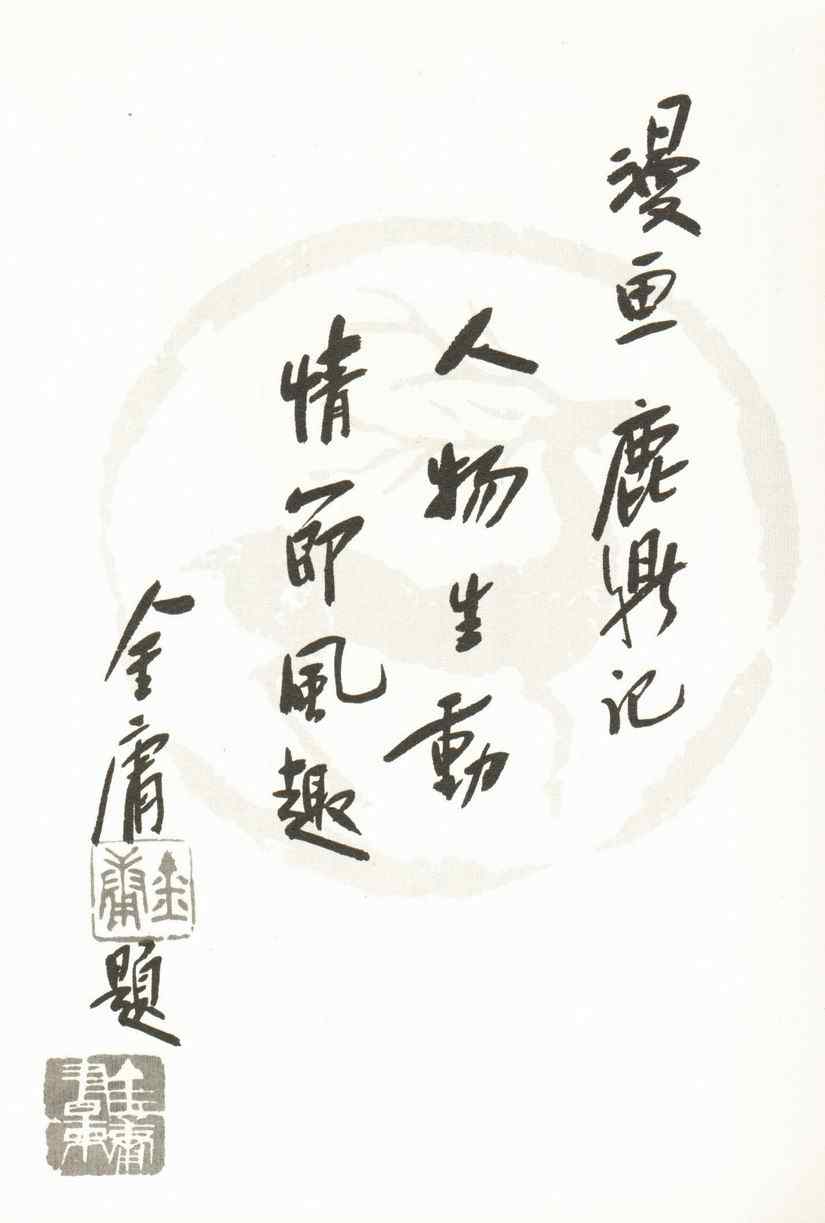 漫画 鹿鼎记
人物生動
情節風趣
金庸
金庸
題